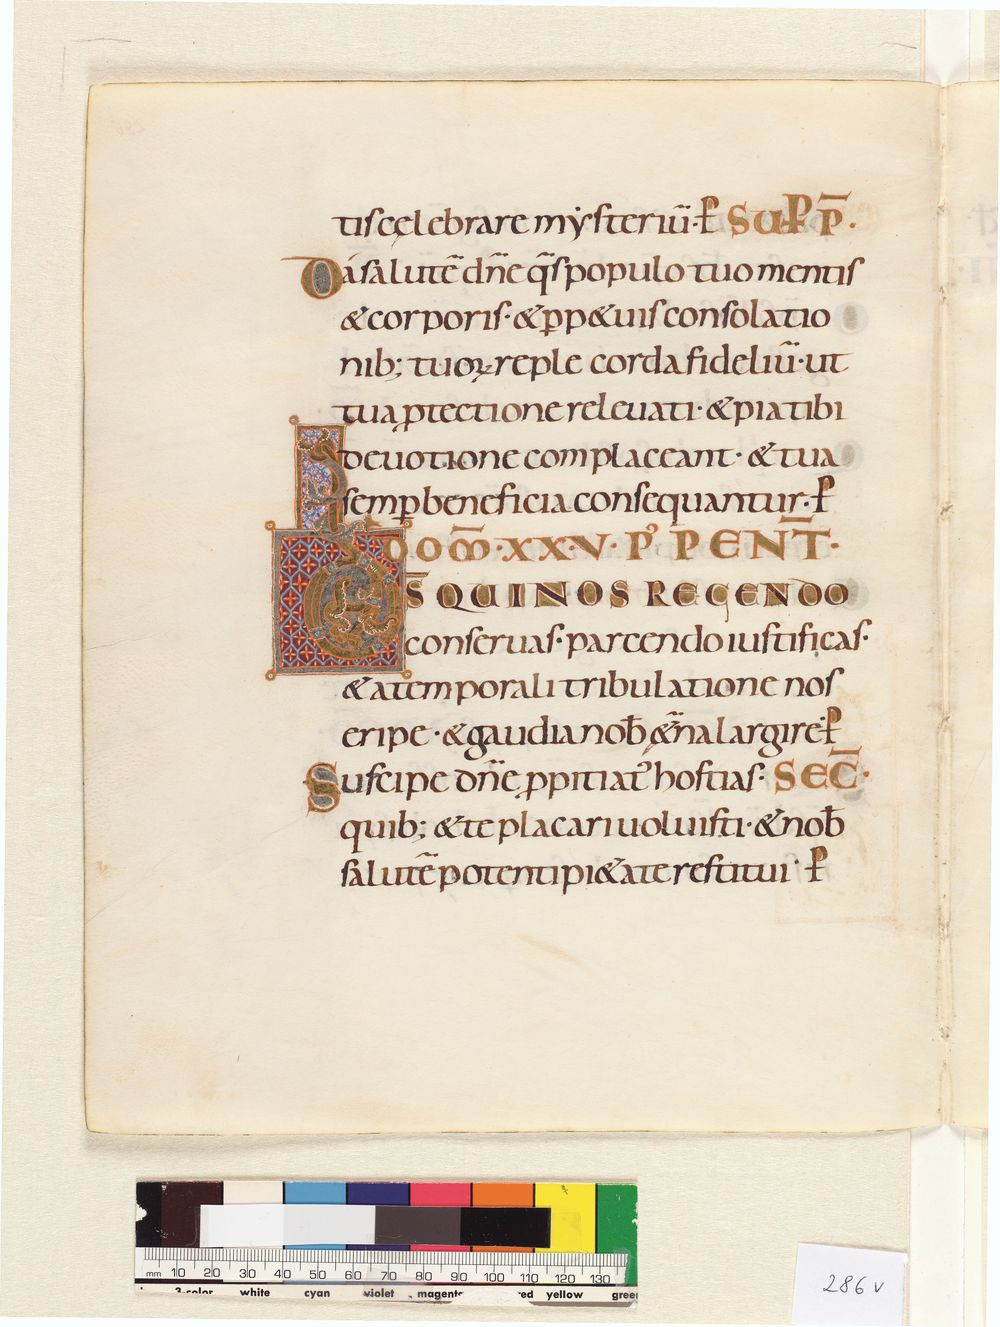 tis cęlebrare mẏsteriū· ꝑ SUP P̄·
Da salutē dn̄e q̄s populo tuo mentis
& corporis· & ꝑp&uis consolatio
nib; tuoꝝ reple corda fideliū· ut
tua ꝓtectione releuati· & pia tibi
deuotione complaceant· & tua
semꝑ beneficia consequantur· ꝑ
DOM̄· XX·V· P' PENT̄·
DS QUI NOS REGENDO
conseruas· parcendo iustificas·
& a temporali tribulatione nos
eripe· & gaudia nob̄ &n̄a largire· ꝑ
Suscipe dn̄e ꝓpitiat' hostias· SEC̄·
quib; & te placari uoluisti· & nob̄
salutē potenti pi&ate restitui· ꝑ
mm 10 20 30 40 50 60 70 80 90 100 110 120 130
3-color white cyan violet magenta red yellow green
286 v